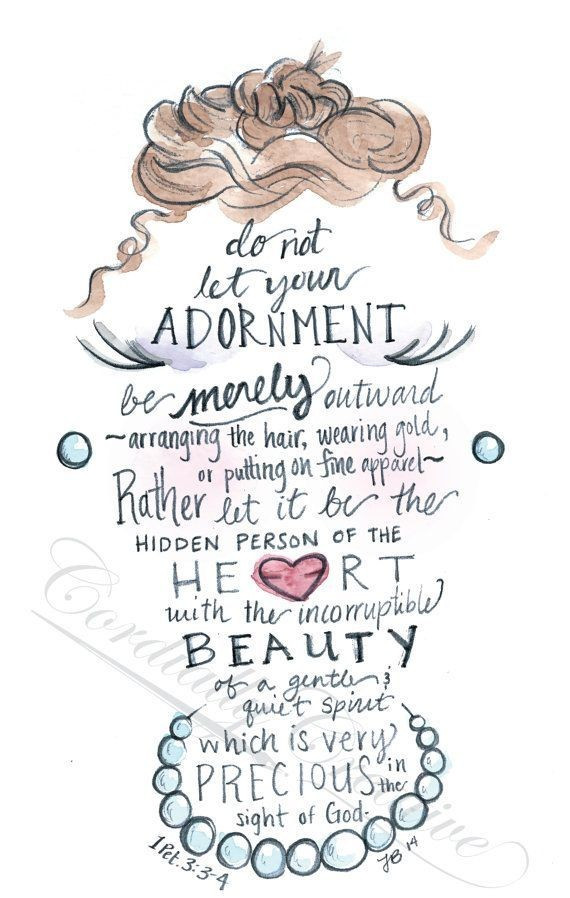 do not
let your
ADORNMENT
be merely outward
~arranging the hair, wearing gold,
or putting on fine apparel~
Rather let it be the
HIDDEN PERSON OF THE
HE RT
with the incorruptible
BEAUTY
of a gentle &
quiet spirit
which is very
PRECIOUS in the
sight of God.
1 Pet. 3:3-4
JB 14
Cordially Creative